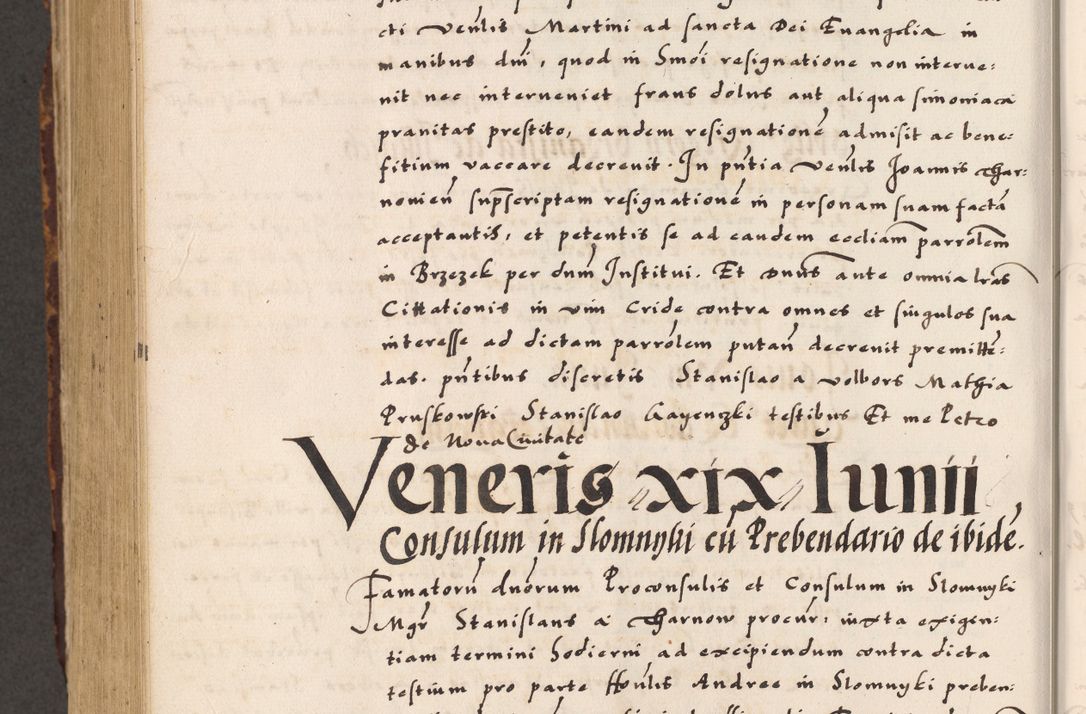 cti Venlis Martini ad sancta Dei Euangelia in
manibus dni, quod in Smoi resignatione non interue:
nit nec interueniet fraus dolus aut aliqua simoniaca
prauitas prestito, eandem resignationē admisit ac bene:
fitium vaccare decreuit. In pn̄tia Venlis Joannis Thar:
nouień sup̄scriptam resignationē in personam suam factā
acceptantis, et petentis se ad eandem eccliam parrolem
in Brzezek per dum̄ Institui. Et Dnus ante omnia lrās
Cittationis in vim Cride contra omnes et singulos sua
interesse ad dictam parrolem putań decreuit premittē:
das. pn̄tibus discretis Stanislao a volbors Mathia
Pruskowski Stanislao Gayenczki testibus Et me Petro
de Noua Ciuitate
Veneris xix Iunii
Consulum in Slomnyki cū Prebendario de ibidē.
Famatorū duorum Proconsulis et Consulum in Slomnyki
Mgr̄ Stanislaus a Tharnow procur̄, iuxta exigen:
tiam termini hodierni ad excipiendum contra dicta
testium pro parte Honlis Andree in Slomnyki preben: